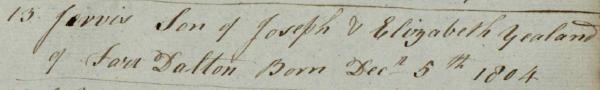 13 Jarvis Son of Joseph & Elizabeth Yealand
of Fara Dalton Born Decr 5th 1804